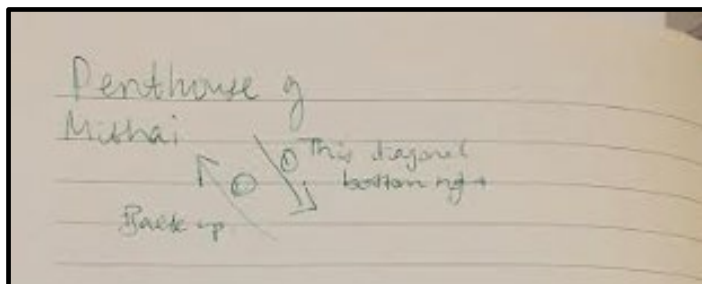 Penthouse of
Mithai
① This diagonal
bottom right
②
Back up